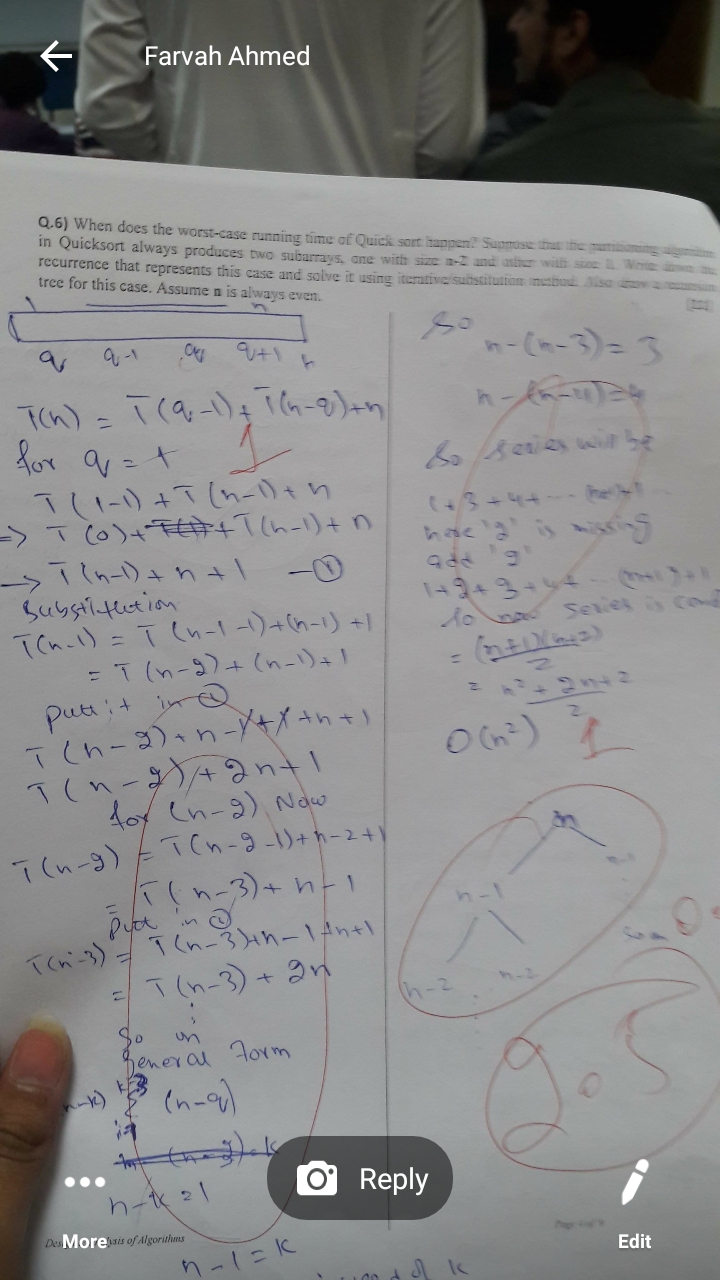 Farvah Ahmed
Q.6) When does the worst-case running time of Quick sort happen? Suppose that the partitioning algorithm
in Quicksort always produces two subarrays, one with size n-2 and other with size 1. Write down the
recurrence that represents this case and solve it using iterative/substitution method. Also draw a recursion
tree for this case. Assume n is always even.
q q-1 q+1 n
T(n) = T(q-1) + T(n-q)+n
1
for q = 1
T(1-1) + T(n-1) + n
=> T(0) + T(n-1) + n
→ T(n-1) + n + 1
Substitution
T(n-1) = T(n-1-1)+(n-1)+1
= T(n-2)+(n-1)+1
Put it in
T(n-2)+n-1+1+n+1
T(n-2)+2n+1
for (n-2) Now
T(n-2) = T(n-2-1)+n-2+1
= T(n-3)+n-1
Put in
T(n-3) = T(n-3)+n-1+n+1
= T(n-3)+2n
So in
general Form
(n-q)
n-k=1
n-1=k
So
n-(n-3)=3
n-(n-4)=4
So series will be
1+3+4+...
here '2' is missing
add '2'
1+2+3+4+...
So now series is
= (n+1)(n+2)
2
= n²+2n+2
2
O(n²)
1
n
n-1
n-2 n-2
2.5
Reply
More
Edit
Analysis of Algorithms